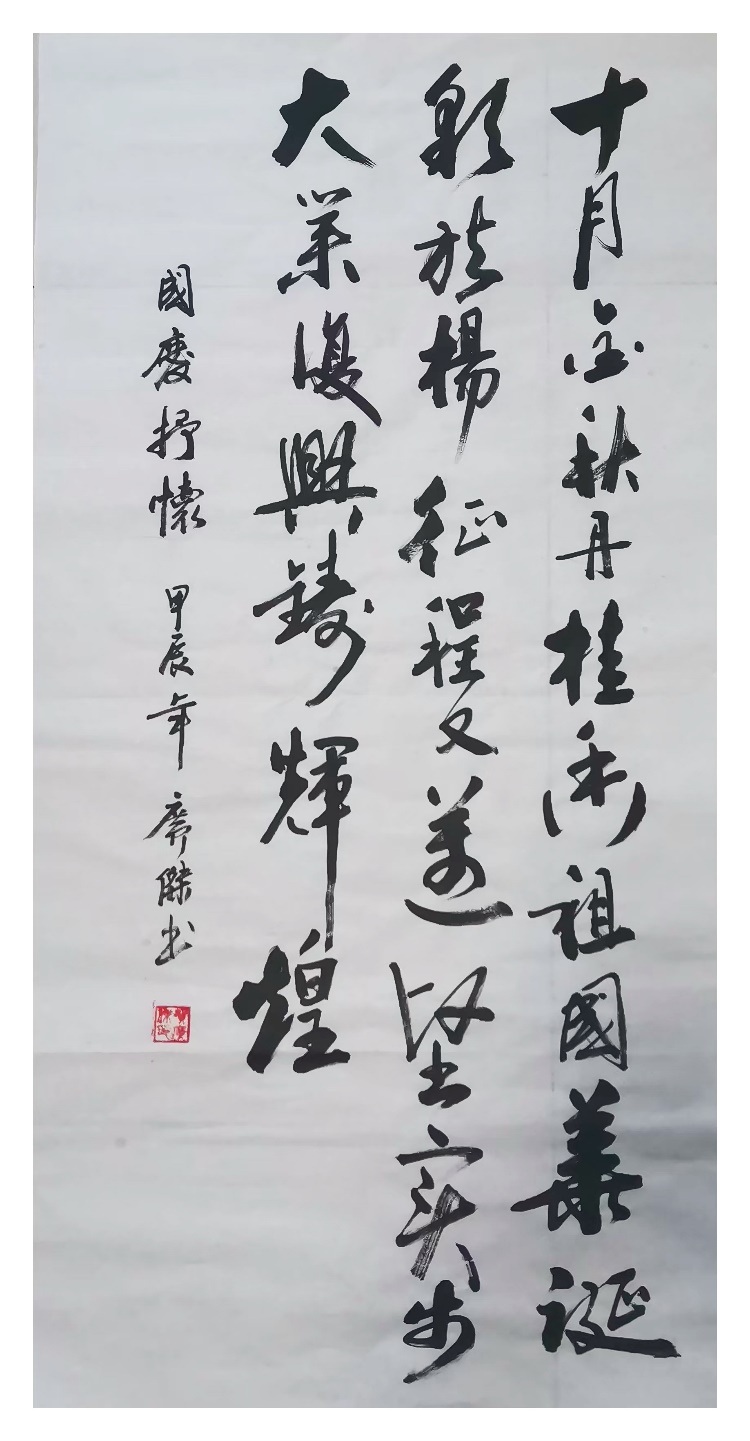 十月金秋丹桂香祖國華誕
彩旗楊征程又邁堅实步
大業復興鑄輝煌
國慶抒懷 甲辰年 席傑书